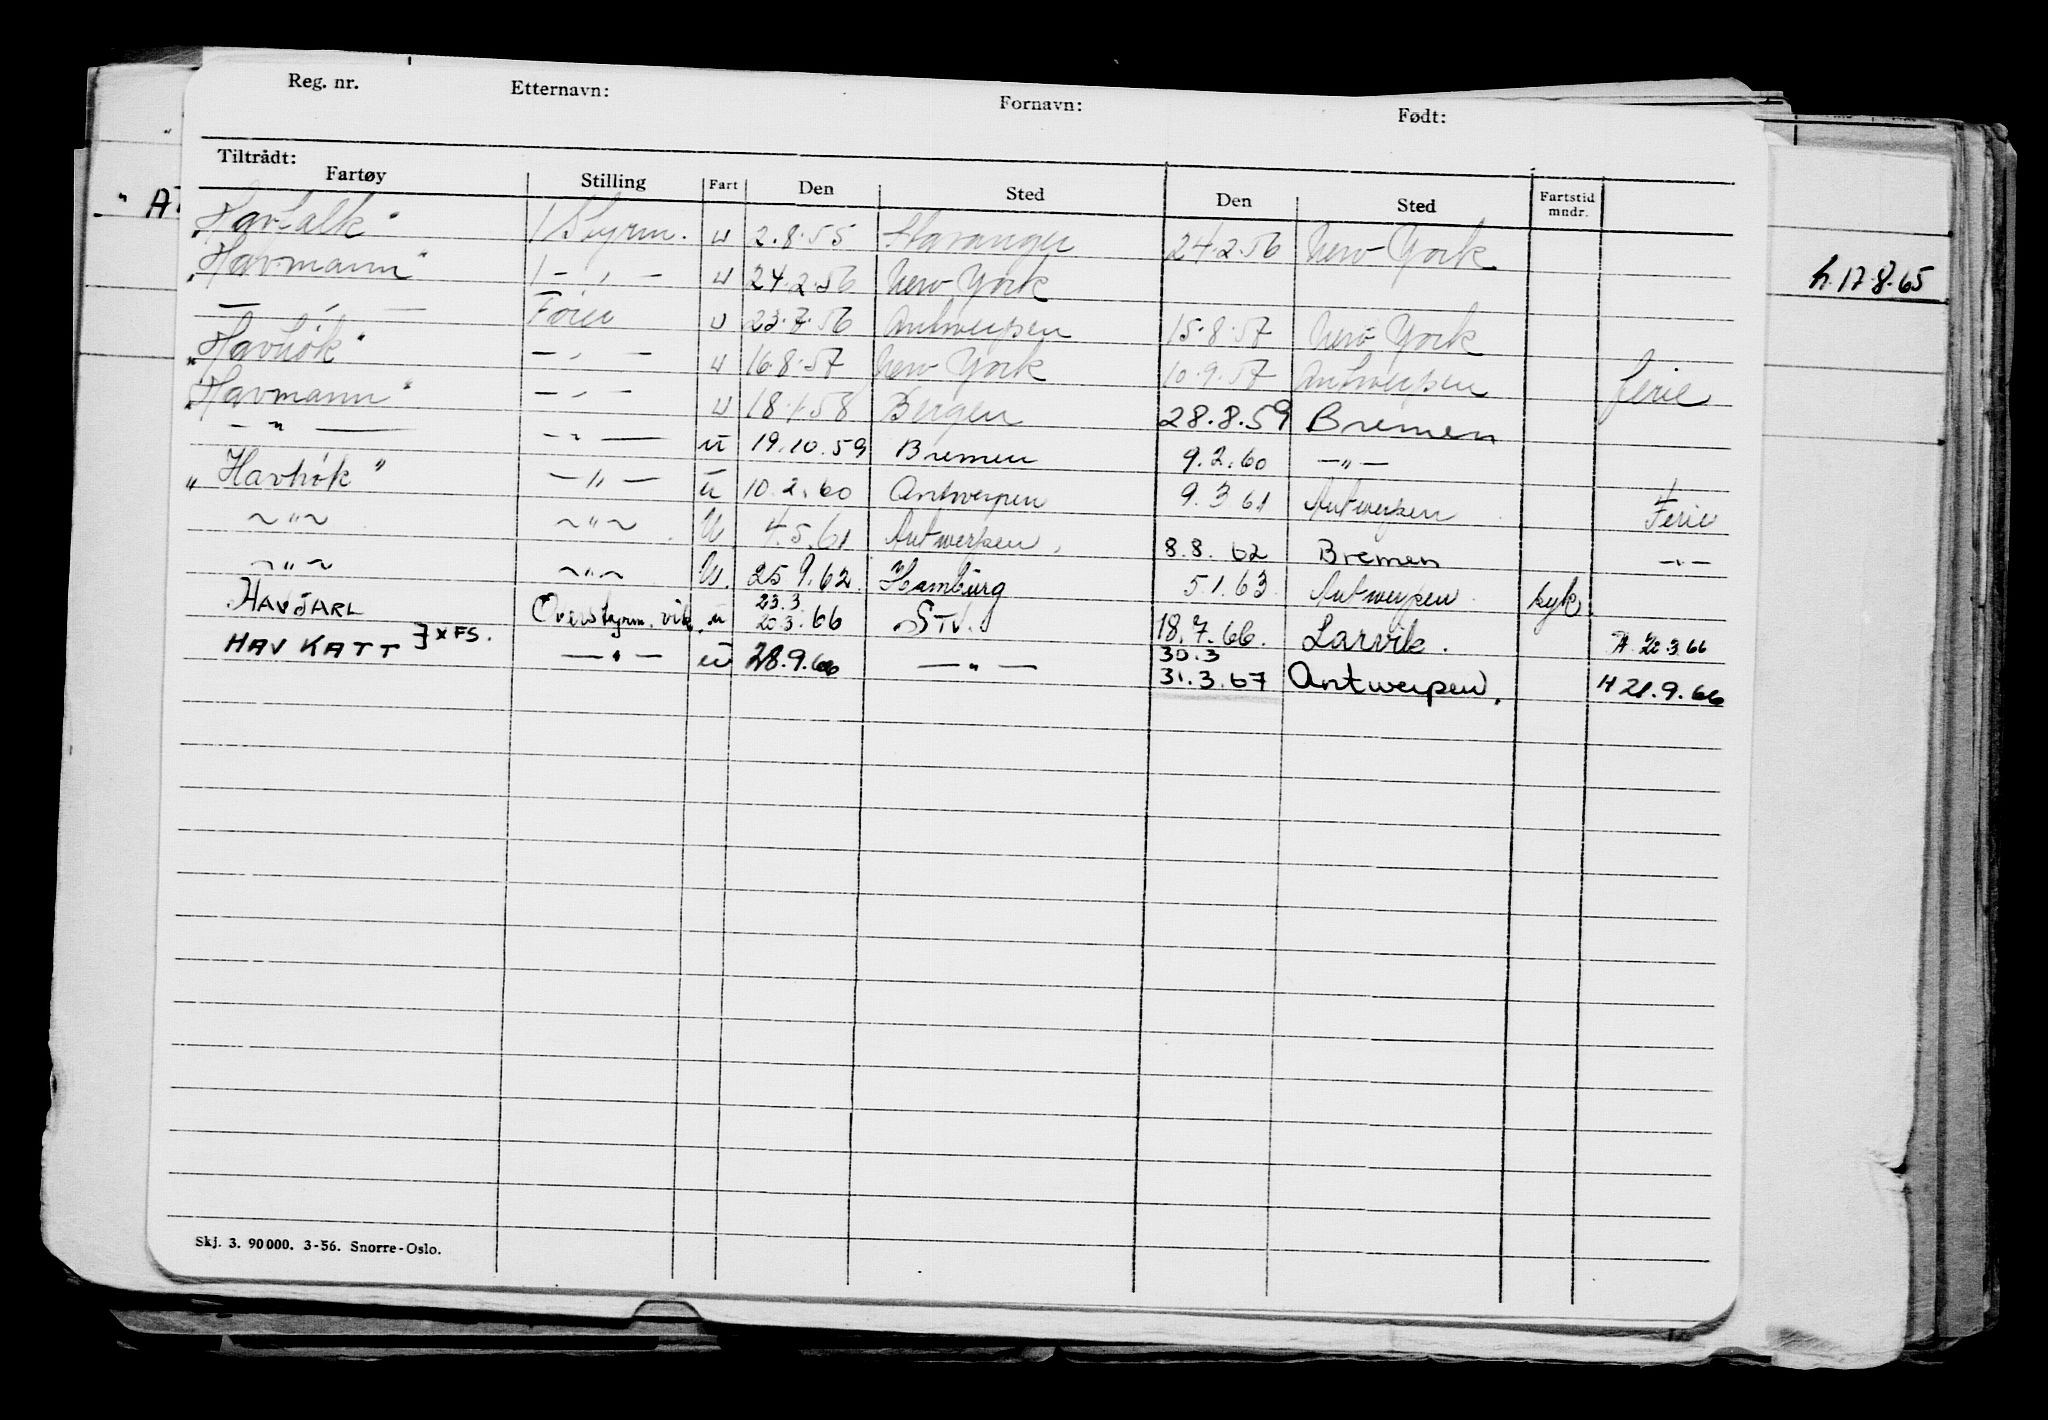 Reg. nr. Etternavn: Fornavn: Født:
Tiltrådt:
Fartøy Stilling Fart Den Sted Den Sted Fartstid mndr.
"Havfalk" 1 Styrm. u 2.8.55 Stavanger 24.2.56 New York
"Havmann" 1 - " - u 24.2.56 New York
- " - Fører u 23.7.56 Antwerpen 15.8.57 New York
"Havhök" - " - u 16.8.57 New York 10.9.57 Antwerpen ferie
"Havmann" - " - u 18.1.58 Bergen 28.8.59 Bremen
- " - - " - u 19.10.59 Bremen 9.2.60 - " -
"Havhök" - " - u 10.2.60 Antwerpen 9.3 61 Antwerpen Ferie
~ " ~ ~ " ~ U 4.5.61 Antwerpen. 8.8.62 Bremen - " -
~ " ~ ~ " ~ U. 25 9.62. Hamburg 5.1.63. Antwerpen. syk.
HAVJARL Overstyrm. vik. u 23.3 20.3.66 STV. 18.7.66. Larvik. A 22.3.66
HAV KATT } x FS. - " - u 28.9.66 - " - 30.3 31.3.67 Antwerpen. H 21.9.66
h. 17.8.65
Skj. 3. 90 000. 3-56. Snorre-Oslo.